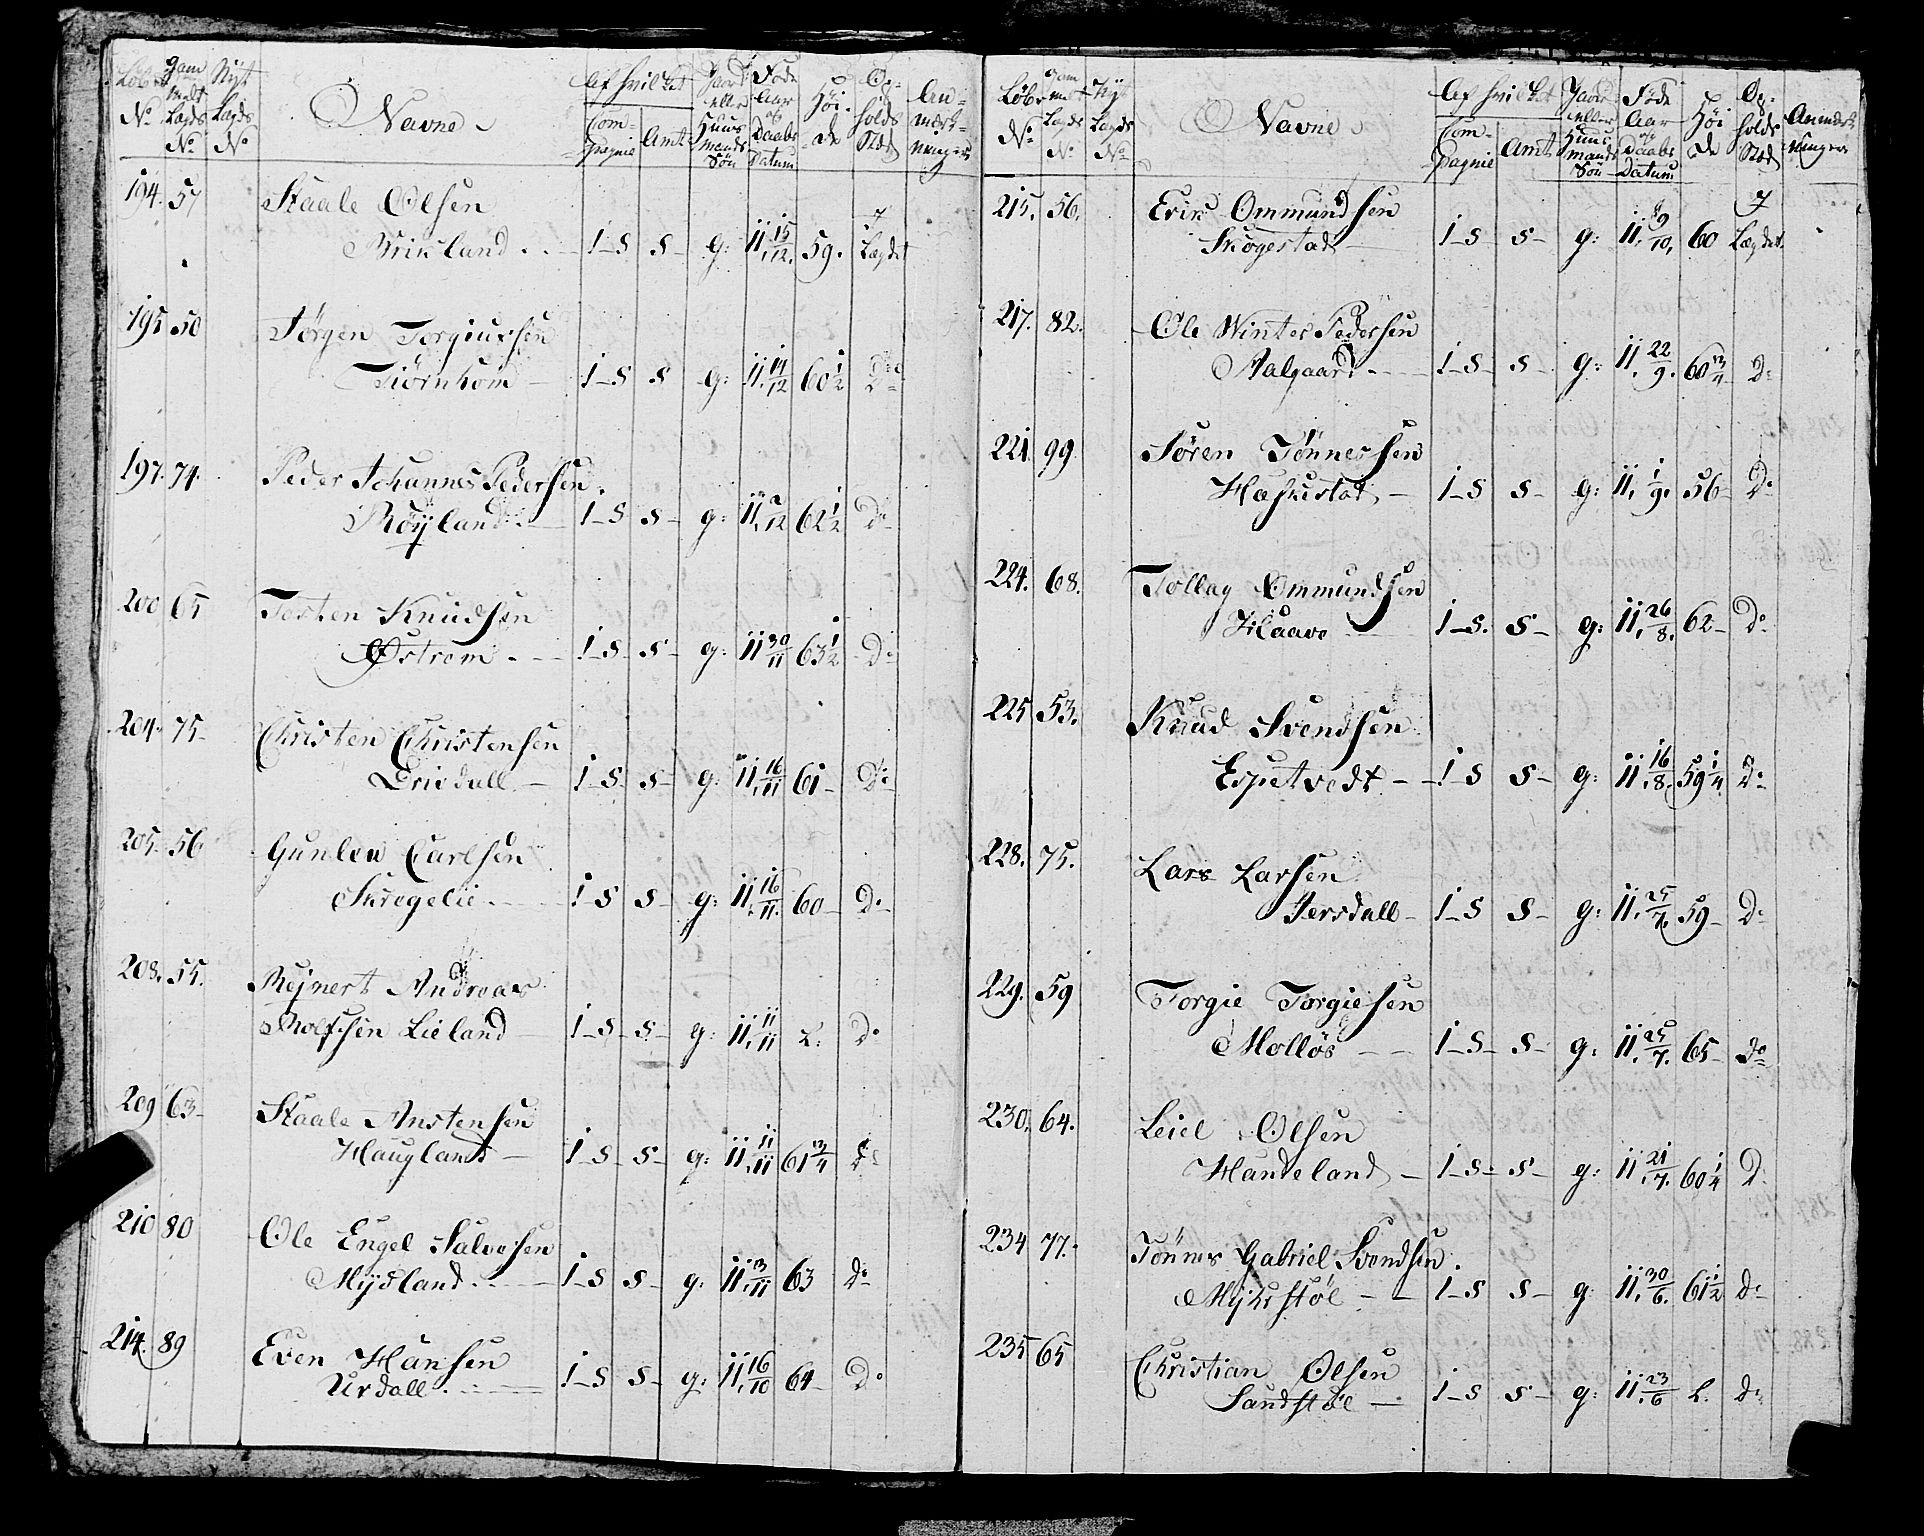 Løbe No gam melt Lægds No Nÿt Lægds No Navne Af hvilket Com- pagnie Amt Gaard eller Huus mands Søn Føde Aar og Daabs Datum Høi- de Op- holds Stæd An- mærk- ninger
194. 57 Staale Olsen
Birkland 1-S S g: 11. 15/12. 59. i Lægdet
195 50 Jørgen Torgiussen
Tiørnhom 1-S S g: 11. 14/12 60 1/2 Do
197. 74. Peder Johannes Pedersen
Røÿland 1-S S- g: 11. 2/12 62 1/2 Do
200 65 Testen Knudsen
Østrem 1-S S- g: 11 30/11 63 1/2 Do
204. 75- Christen Christensen
Eriedall 1-S S- g: 11. 16/11 61- Do
205. 56 Gunleu Carlsen
Skregelie 1-S S- g: 11. 16/11. 60- Do
208. 55. Mejnert Andreas
Rolfsen Lieland 1-S S- g: 11. 11/11 L: Do
209 63- Staale Anstensen
Haugland 1-S S- g: 11. 11/11 61 3/4 Do
210 80 Ole Engel Salvesen
Mÿdland 1-S S- g: 11. 3/11 63 Do
214. 89 Even Hansen
Urdall 1-S S- g: 11. 16/10 64- Do
Løbe No gam melt Lægds No Nÿt Lægds No Navne Af hvilket Com- pagnie Amt Gaard eller Huus mands Søn Føde Aar og Daabs Datum Høi de Op- holds Stæd Anmærk- ninger
215. 56. Erik Ommundsen
Skogestad 1-S S- g: 11. 9/10. 60 i Lægdet.
217. 82. Ole Winter Pedersen
Aalgaard 1-S- S- g: 11. 22/9. 60 3/4 Do
221 99 Søren Tønnessen
Hafustad 1-S S- g: 11. 1/9. 56- Do
224. 68. Tollag Ommundsen
Haave 1-S. S- g: 11. 26/8. 62- Do
225 53. Knud Svendsen
Espetvedt 1-S S- g: 11. 16/8. 59 1/4 Do
228. 75. Lars Larsen
Jersdall 1-S S- g: 11. 25/7. 59- Do
229. 59 Torgie Torgiesen
Molløs 1-S- S- g: 11. 25/7. 65- Do
230. 64. Leiel Olsen
Handeland 1-S- S- g: 11. 21/7. 60 1/4 Do
234 77. Tønnes Gabriel Svendsen.
Mÿkstøl 1-S S- g: 11. 30/6. 61 1/2 Do
235 65 Christian Olsen
Sandstøl 1-S S- g: 11. 23/6 L. Do